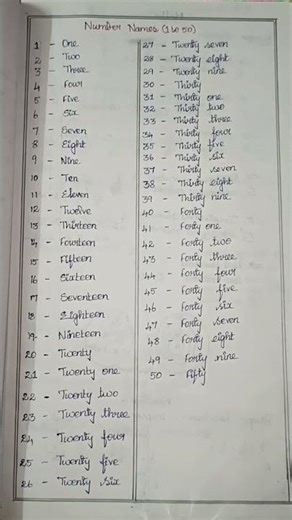 Number Names (1 to 50)
1 - One
2 - Two
3 - Three
4 - Four
5 - Five
6 - Six
7 - Seven
8 - Eight
9 - Nine
10 - Ten
11 - Eleven
12 - Twelve
13 - Thirteen
14 - Fourteen
15 - Fifteen
16 - Sixteen
17 - Seventeen
18 - Eighteen
19 - Nineteen
20 - Twenty
21 - Twenty one
22 - Twenty two
23 - Twenty three
24 - Twenty four
25 - Twenty five
26 - Twenty six
27 - Twenty seven
28 - Twenty eight
29 - Twenty nine
30 - Thirty
31 - Thirty one
32 - Thirty two
33 - Thirty three
34 - Thirty four
35 - Thirty five
36 - Thirty six
37 - Thirty seven
38 - Thirty eight
39 - Thirty nine
40 - Forty
41 - Forty one
42 - Forty two
43 - Forty three
44 - Forty four
45 - Forty five
46 - Forty six
47 - Forty seven
48 - Forty eight
49 - Forty nine
50 - Fifty